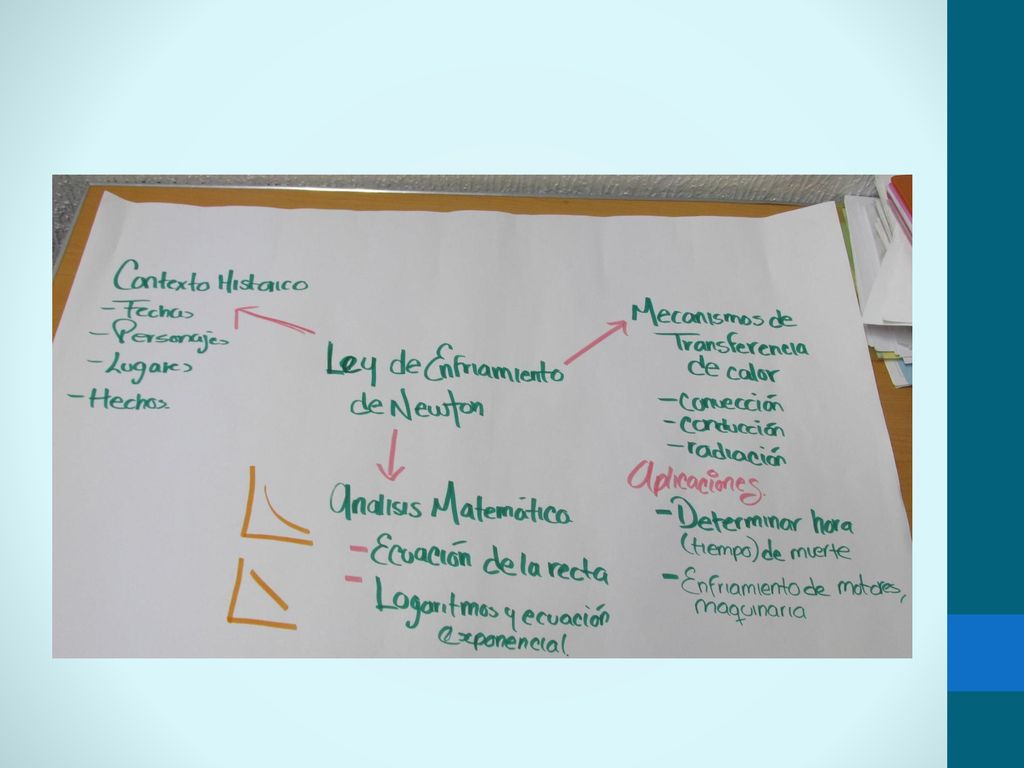 Contexto Historico
- Fechas
- Personajes
- Lugares
- Hechos
Ley de Enfriamiento
de Newton
Mecanismos de
Transferencia
de calor
- convección
- conducción
- radiación
Aplicaciones.
- Determinar hora
(tiempo) de muerte
- Enfriamiento de motores,
maquinaria
Analisis Matemático
- Ecuación de la recta
- Logaritmos y ecuación
exponencial.